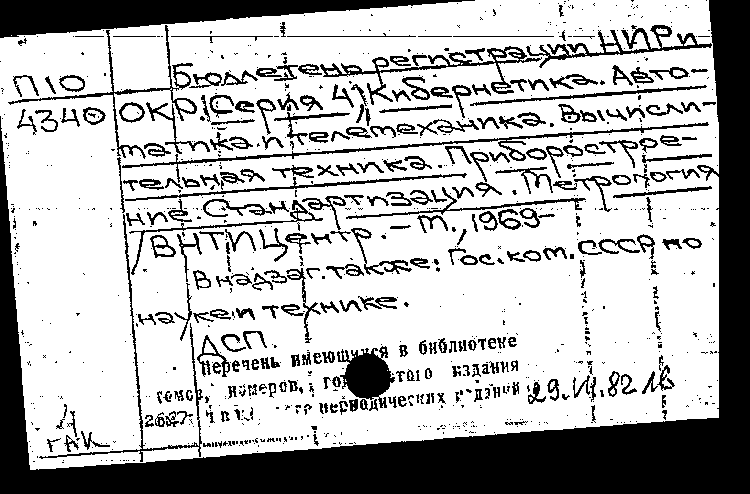 П10
4340
Бюллетень регистрации НИР и
ОКР. (Серия 4) Кибернетика. Авто-
матика и телемеханика. Вычисли-
тельная техника. Приборострое-
ние. Стандартизация. Метрология
/ВНТИЦентр. – М., 1969–
В надзаг. также: Гос. ком. СССР по
науке и технике.
ДСП.
Перечень имеющихся в библиотеке
томов, номеров, этого издания
периодических изданий
29.VI.82
ГАК